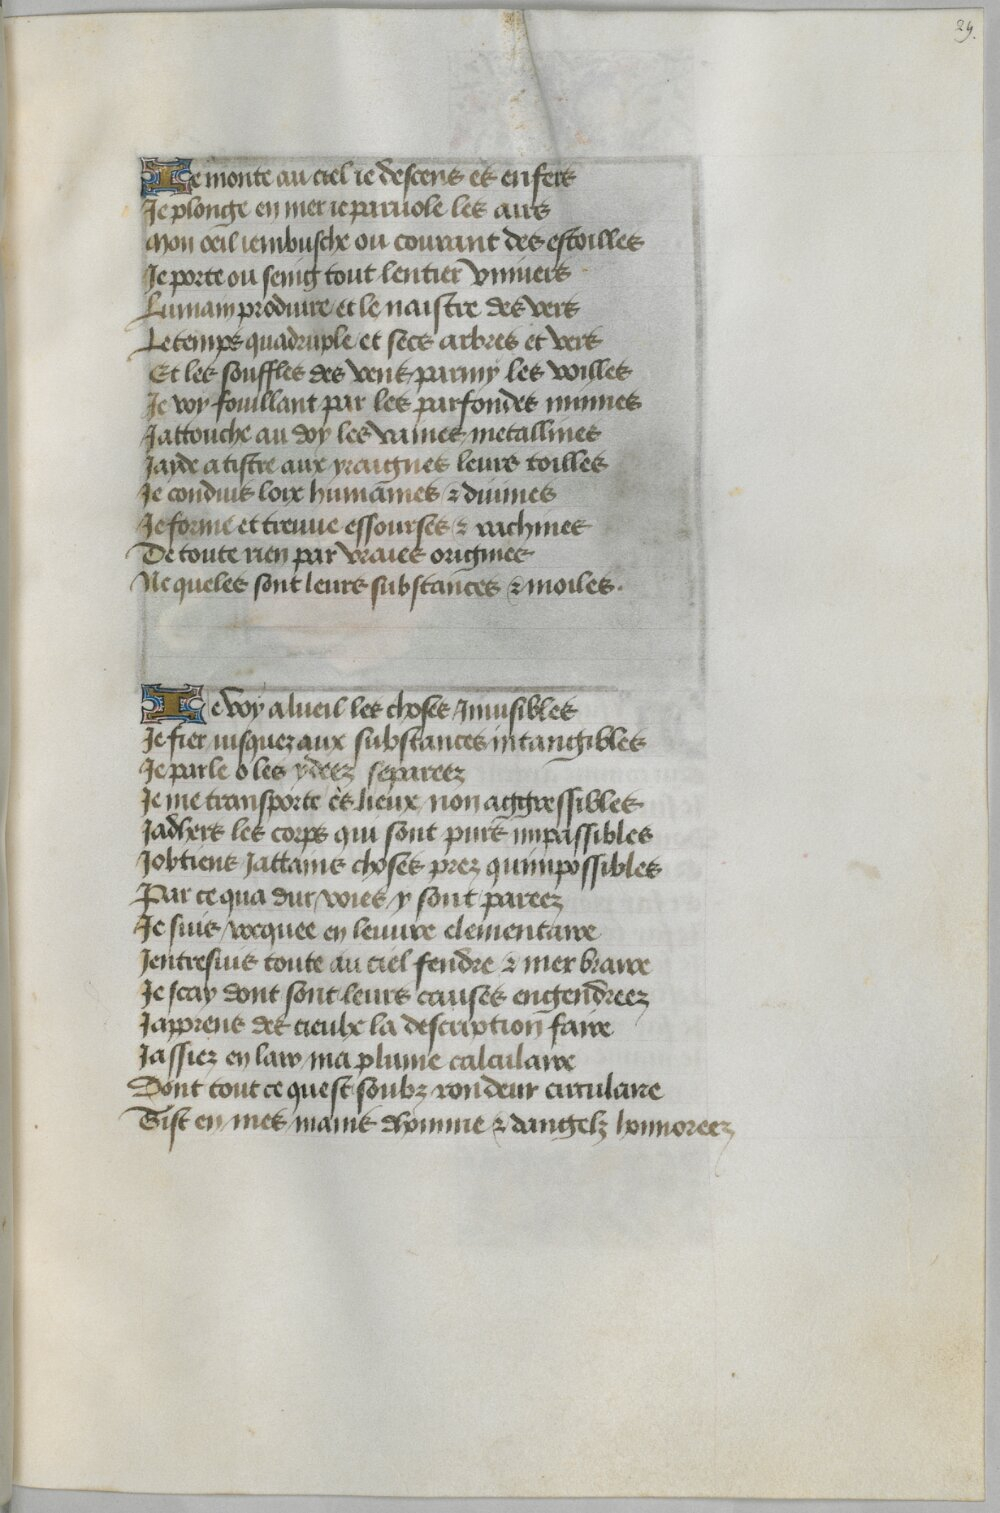 29.
Je monte au ciel ie descens es enfers
Je plonge en mer ie paruole les airs
Mon oeil iembusche ou courant des estoilles
Je porte ou seing tout lentier vniuers
Lumain produire et le naistre des vers
Le temps quadruple et secs arbres et vers
Et les souffles des vens parmy les voilles
Je voy fouillant par les parfondes minnes
Jattouche au doy les vaines metallines
Jayde a tistre aux yraignes leurs toilles
Je conduis loix humaines & diuines
Je forme et treuue essourses & rachines
De toute rien par vraies origines
Ne queles sont leurs substances & moiles.
Je voy a lueil les choses Inuisibles
Je fier iusquez aux substances intangibles
Je parle o les ydeez separeez
Je me transporte es lieux non aggressibles
Jadhers les corps qui sont purs impassibles
Jobtiens Jattains choses prez quimpossibles
Par ce qua dur voies y sont pareez
Je suis vocquee en leuure elementaire
Jentresuis toute au ciel fendre & mer braire
Je scay dont sont leurs causes engendreez
Japprens des cieulx la description faire
Jassiez en lair ma plume calculaire
Dont tout ce quest soubz rondeur circulaire
Gist en mes mains dhomme & dangelz honnoreez